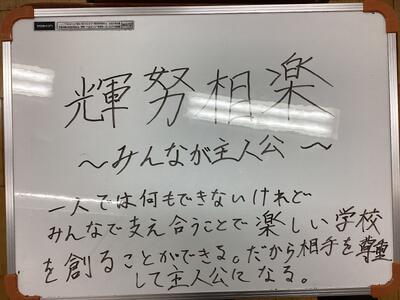 輝努相楽
〜みんなが主人公〜
一人では何もできないけれど
みんなで支え合うことで楽しい学校
を創ることができる。だから相手を尊重
して主人公になる。